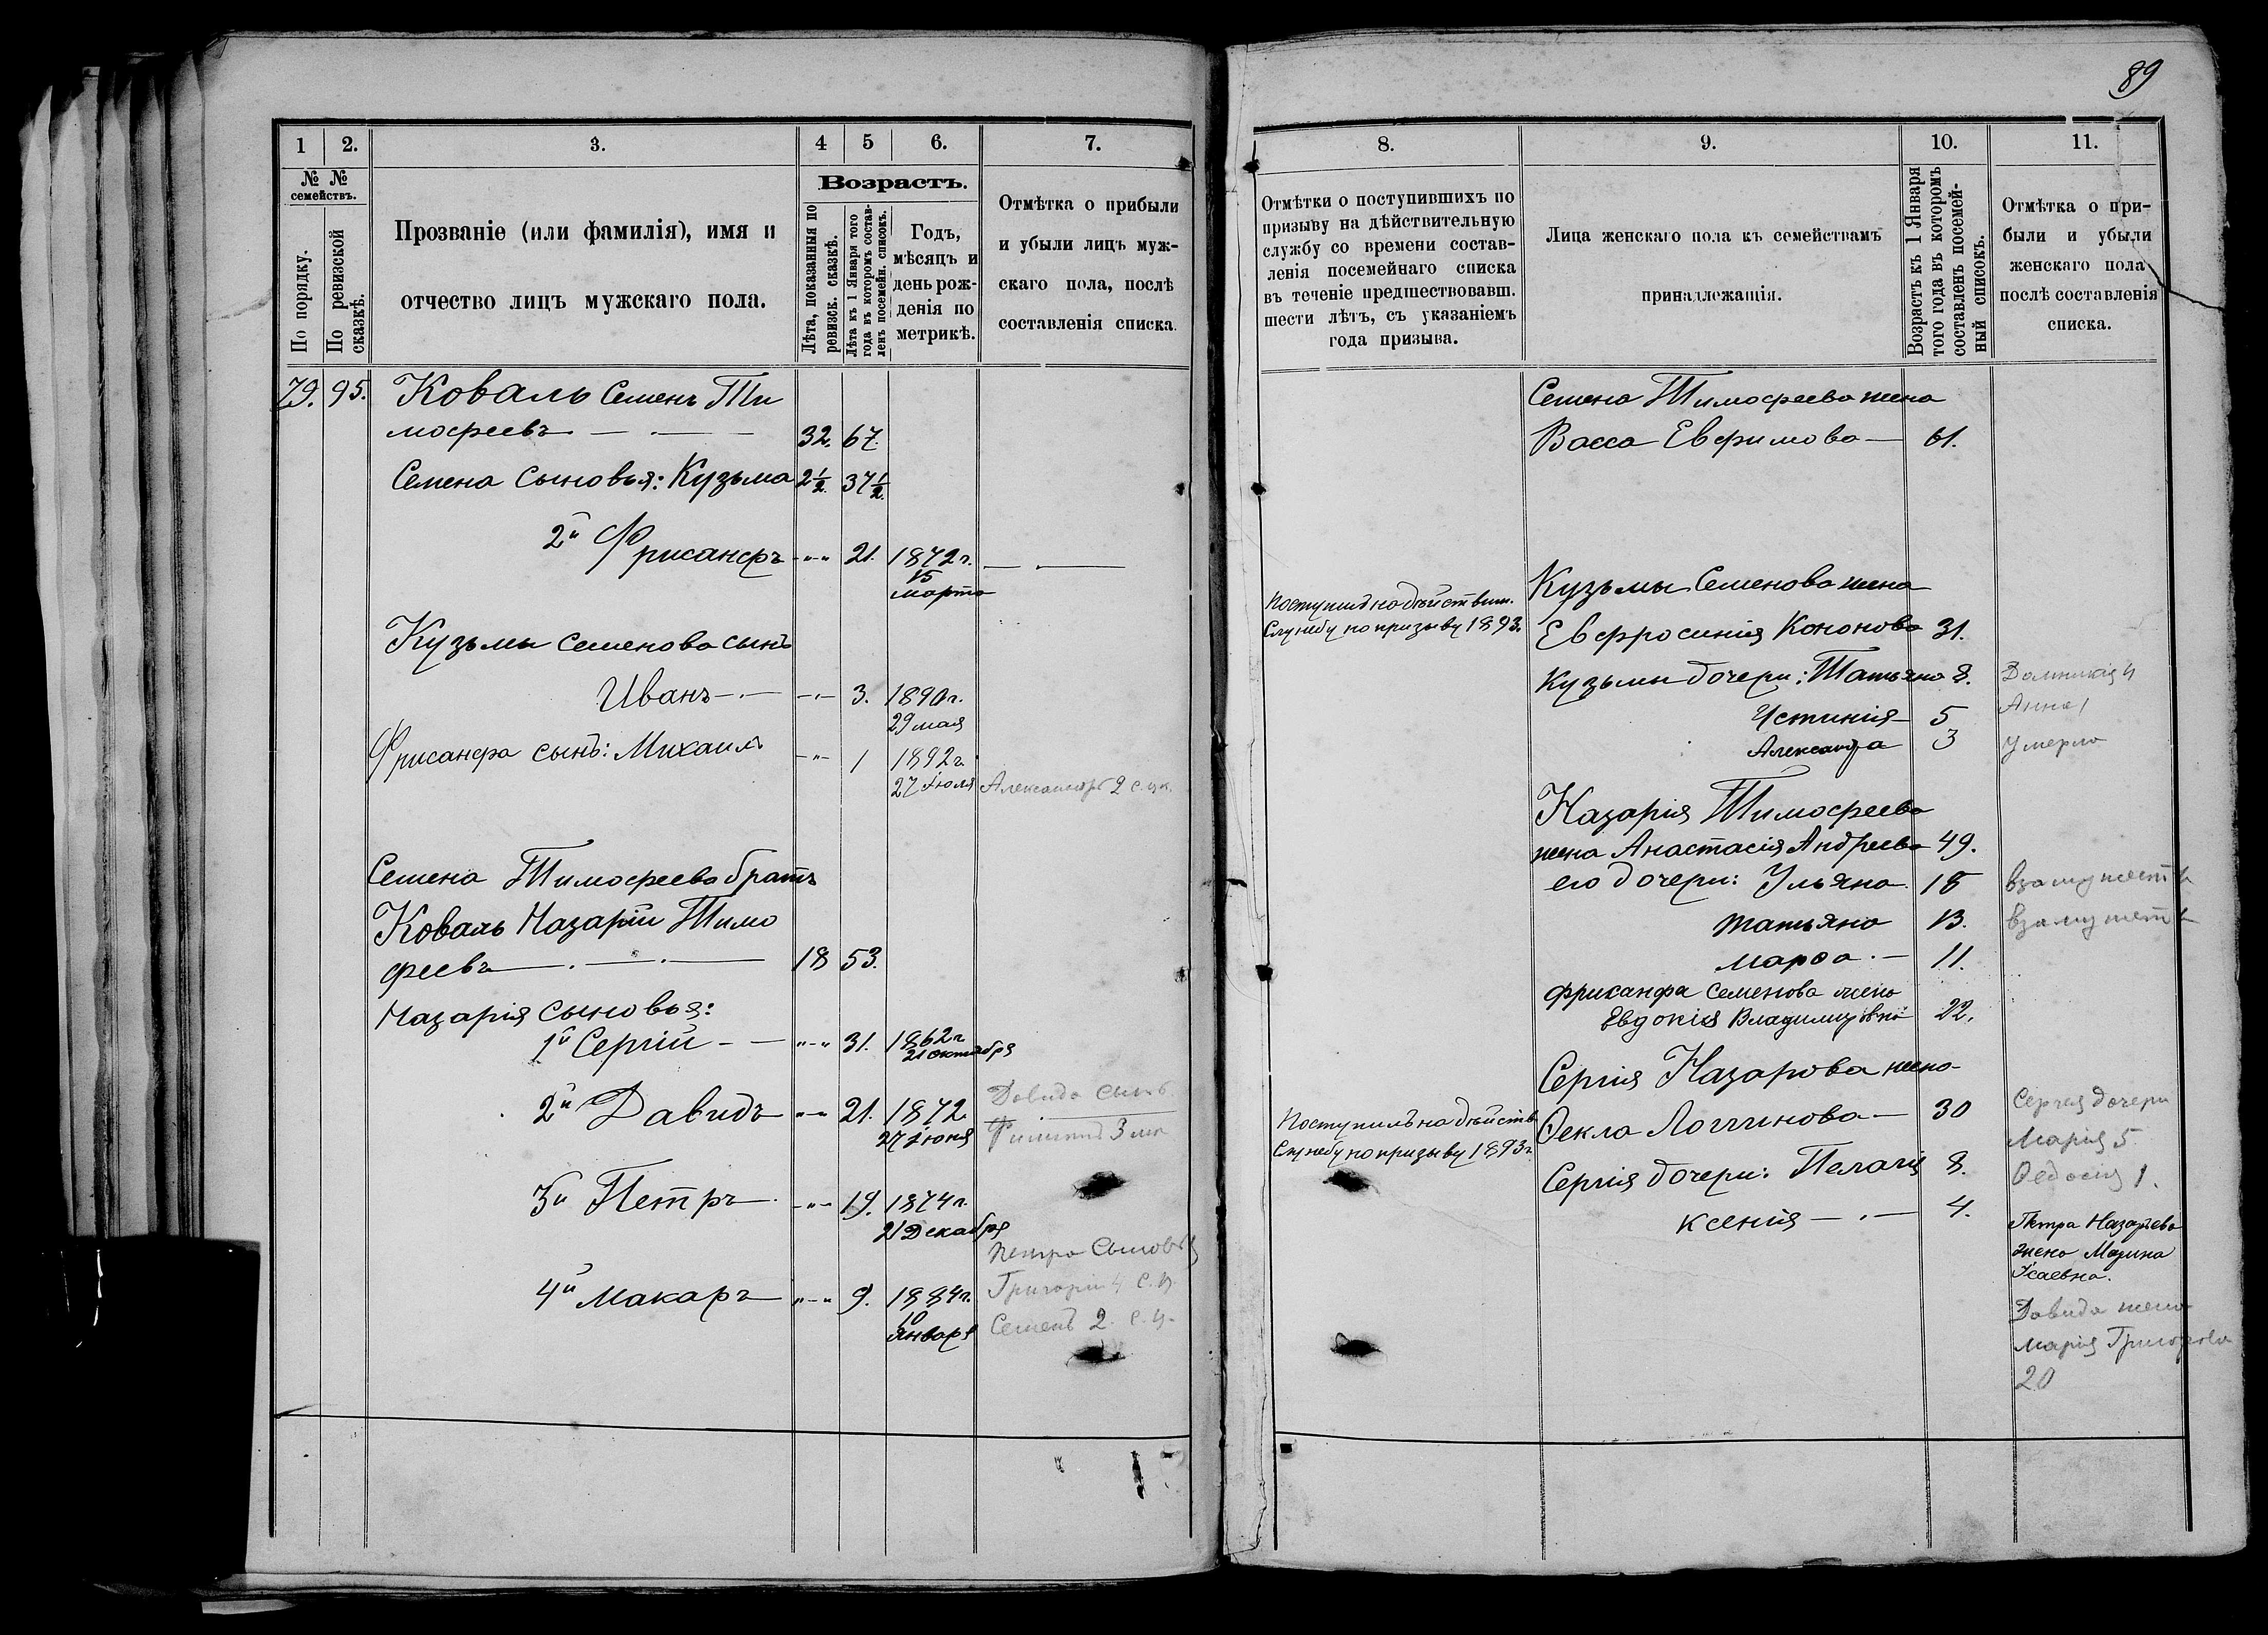 89
1
2.
3.
4
5
6.
7.
№ №
семействъ.
По порядку.
По ревизской
сказкѣ.
Прозваніе (или фамилія), имя и
отчество лицъ мужскаго пола.
Возрастъ.
Лѣта, показанныя по
ревизск. сказкѣ.
Лѣта къ 1 Января того
года въ которомъ состав-
ленъ посемейн. списокъ.
Годъ,
мѣсяцъ и
день рож-
денія по
метрикѣ.
Отмѣтка о прибыли
и убыли лицъ муж-
скаго пола, послѣ
составленія списка.
79. 95. Коваль Семенъ Ти
мофеевъ 32. 67.
Семена сыновья: Кузьма 2½ 37½
2й Фрисанфъ 21. 1872г.
15
марта
Кузьмы Семенова сынъ
Иванъ 3. 1890г.
29 мая
Фрисанфа сынъ: Михаилъ 1 1892г.
27 Іюля Александръ 2
Семена Тимофеева братъ
Коваль Назарій Тимо
феевъ 18 53.
Назарія сыновья:
1й Сергій 31. 1862г
21 октября
2й Давидъ 21. 1872.
27 Іюня
Давида сынъ
3
3й Петръ 19. 1874г.
21 Декабря
Петра сыновья
4й Макаръ 9. 1884г.
10
Января
Григорій 4
Семенъ 2.
8.
9.
10.
11.
Отмѣтки о поступившихъ по
призыву на дѣйствительную
службу со времени состав-
ленія посемейнаго списка
въ теченіе предшествовавш.
шести лѣтъ, съ указаніемъ
года призыва.
Лица женскаго пола къ семействамъ
принадлежащія.
Возрастъ къ 1 Января
того года въ которомъ
составленъ посемей-
ный списокъ.
Отмѣтка о при-
были и убыли
женскаго пола
послѣ составленія
списка.
Семена Тимофеева жена
Васса Евфимова 61.
Кузьмы Семенова жена
Поступилъ на дѣйствит.
службу по призыву 1893.
Евфросинія Кононова 31.
Кузьмы дочери: Татьяна 8. Домникія 4
Устинія 5 Анна 1
Александра 3 Умерла
Назарія Тимофеева
жена Анастасія Андреева 49.
его дочери: Ульяна 18 взамужеств
Татьяна 13. взамужеств
Марѳа 11.
Фрисанфа Семенова жена
Евдокія Владимировна 22.
Сергія Назарова жена
Поступилъ на дѣйств
службу по призыву 1893г.
Ѳекла Логгинова 30
Сергія дочери: Пелагія 8.
Ксенія 4.
Сергея дочери
Марія 5
Ѳедосія 1.
Петра Назарьева
жена Марина
Исаевна.
Давида жена
Марія Григорьева
20